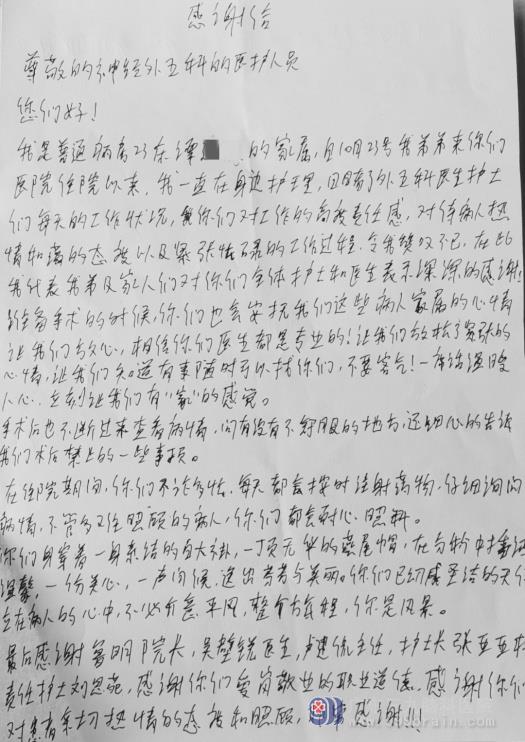 感谢信
尊敬的神经外五科的医护人员
您们好！
我是普通病房23床谭 的家属，自10月23号我弟弟来你们
医院住院以来，我一直在身边护理，目睹了外五科医生护士
们每天的工作状况，你们对工作的高度责任感，对待病人热
情和蔼的态度以及紧张忙碌的工作过程，令我赞叹不已，在此
我代表我弟及家人们对你们全体护士和医生表示深深的感谢！
准备手术的时候，你们也会安抚我们这些病人家属的心情
让我们放心，相信你们医生都是专业的！让我们放松了紧张的
心情，让我们知道有事随时可以找你们，不要客气！一席话温暖
人心，立刻让我们有“家”的感觉。
手术后也不断过来查看病情，问有没有不舒服的地方，还细心的告诉
我们术后禁止的一些事项。
在住院期间，你们不论多忙，每天都会按时注射药物，仔细询问
病情，不管多难照顾的病人，你们都会耐心照料。
你们身穿着一身素洁的白大褂，一顶无华的燕尾帽，在匆忙中播洒
温馨，一份关心，一声问候，送出 与美丽。你们已幻成圣洁的天使
立在病人的心中，不必介意平凡，整个旅程，你是风景。
最后感谢 明院长，吴 锐医生，卢建侃主任，护士长张亚亚和
责任护士刘思苑，感谢你们爱岗敬业的职业道德，感谢你们
对患者亲切热情的态度和照顾，非常感谢！！！